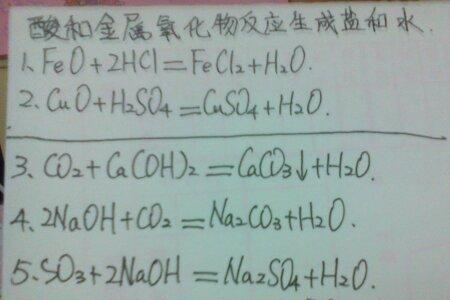 酸和金属氧化物反应生成盐和水.
1、FeO+2HCl=FeCl₂+H₂O.
2、CuO+H₂SO₄=CuSO₄+H₂O.
3、CO₂+Ca(OH)₂=CaCO₃↓+H₂O.
4、2NaOH+CO₂=Na₂CO₃+H₂O.
5、SO₃+2NaOH=Na₂SO₄+H₂O.